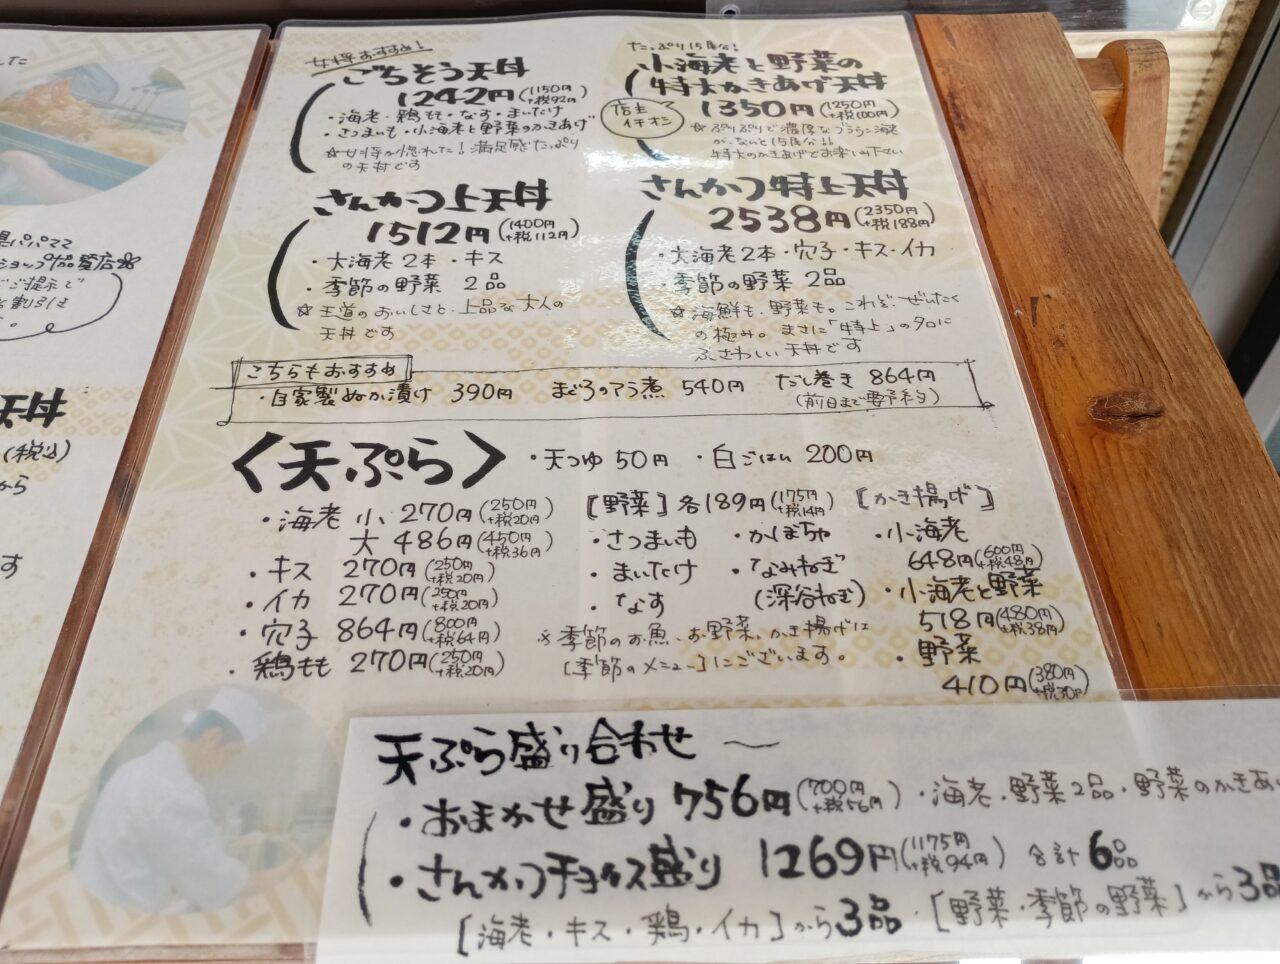 女将おすすめ!
ごちそう天丼
1242円(1150円+税92円)
・海老・鶏もも・なす・まいたけ
・さつまいも・小海老と野菜のかきあげ
☆女将が惚れた!満足感たっぷり
の天丼です
たっぷり15尾分!
小海老と野菜の
特大かきあげ天丼
店主イチオシ
1350円(1250円+税100円)
☆ぷりぷりで濃厚なブラウン海老
がなんと15尾分!!
特大のかきあげでお楽しみ下さい
さんかつ上天丼
1512円(1400円+税112円)
・大海老2本・キス
・季節の野菜 2品
☆王道のおいしさと、上品な大人の
天丼です
さんかつ特上天丼
2538円(2350円+税188円)
・大海老2本・穴子・キス・イカ
・季節の野菜 2品
☆海鮮も、野菜も。これぞ、ぜいたく
の極み。まさに「特上」の名に
ふさわしい天丼です
こちらもおすすめ
・自家製ぬか漬け 390円 まぐろのアラ煮 540円 だし巻き 864円
(前日まで要予約)
〈天ぷら〉 ・天つゆ 50円 ・白ごはん 200円
・海老 小 270円(250円+税20円)
大 486円(450円+税36円)
・キス 270円(250円+税20円)
・イカ 270円(250円+税20円)
・穴子 864円(800円+税64円)
・鶏もも 270円(250円+税20円)
[野菜]各189円(175円+税14円)
・さつまいも ・かぼちゃ
・まいたけ ・なみねぎ
・なす (深谷ねぎ)
※季節のお魚、お野菜、かき揚げは
[季節のメニュー]にございます。
[かき揚げ]
・小海老
648円(600円+税48円)
・小海老と野菜
518円(480円+税38円)
・野菜
410円(380円+税30円)
天ぷら盛り合わせ 〜
・おまかせ盛り 756円(700円+税56円)・海老・野菜2品・野菜のかきあ
・さんかつチョイス盛り 1269円(1175円+税94円) 合計6品
[海老・キス・鶏・イカ]から3品・[野菜・季節の野菜]から3品
天丼
(税込)
から